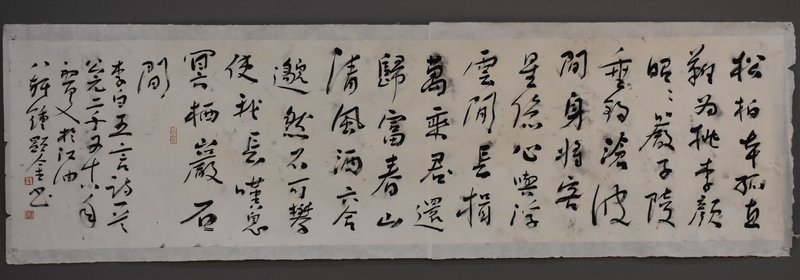 松柏本孤直
難为桃李顏
昭〻嚴子陵
垂钓滄波
間身將客
星隐心與浮
雲閒長揖
萬乘君還
歸富春山
清風洒六合
邈然不可攀
使我長嘆息
冥栖巖石
間
李白五言詩一首
公元二千又十八年
於江油
鍾顯金书